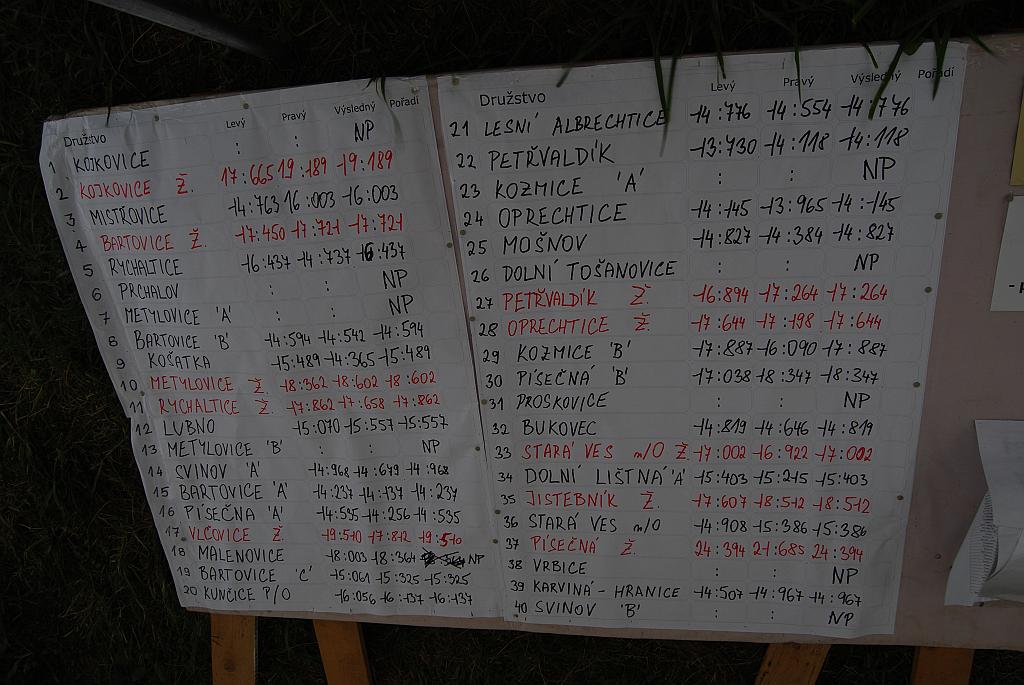 Družstvo Levý Pravý Výsledný Pořadí
1 KOJKOVICE : : NP
2 KOJKOVICE Ž. 17:665 19:189 19:189
3 MISTŘOVICE 14:763 16:003 16:003
4 BARTOVICE Ž. 17:450 17:721 17:721
5 RYCHALTICE 16:437 14:737 16:437
6 PRCHALOV : : NP
7 METYLOVICE 'A' : : NP
8 BARTOVICE 'B' 14:594 14:542 14:594
9 KOŠATKA 15:489 14:365 15:489
10 METYLOVICE Ž. 18:362 18:602 18:602
11 RYCHALTICE Ž. 17:862 17:658 17:862
12 LUBNO 15:070 15:557 15:557
13 METYLOVICE 'B' : : NP
14 SVINOV 'A' 14:968 14:679 14:968
15 BARTOVICE 'A' 14:237 14:137 14:237
16 PÍSEČNA 'A' 14:535 14:256 14:535
17 VLČOVICE Ž. 19:510 17:812 19:510
18 MALENOVICE 18:003 18:364 NP
19 BARTOVICE 'C' 15:061 15:325 15:325
20 KUNČICE P/O 16:056 16:137 16:137
Družstvo Levý Pravý Výsledný Pořadí
21 LESNÍ ALBRECHTICE 14:776 14:554 14:776
22 PETŘVALDÍK 13:730 14:118 14:118
23 KOZMICE 'A' : : NP
24 OPRECHTICE 14:145 13:965 14:145
25 MOŠNOV 14:827 14:384 14:827
26 DOLNÍ TOŠANOVICE : : NP
27 PETŘVALDÍK Ž. 16:894 17:264 17:264
28 OPRECHTICE Ž. 17:644 17:198 17:644
29 KOZMICE 'B' 17:887 16:090 17:887
30 PÍSEČNÁ 'B' 17:038 18:347 18:347
31 PROSKOVICE : : NP
32 BUKOVEC 14:819 14:646 14:819
33 STARÁ VES n/O Ž. 17:002 16:922 17:002
34 DOLNÍ LIŠTNÁ 'A' 15:403 15:215 15:403
35 JISTEBNÍK Ž. 17:607 18:512 18:512
36 STARÁ VES n/O 14:908 15:386 15:386
37 PÍSEČNÁ Ž. 24:394 21:685 24:394
38 VRBICE : : NP
39 KARVINÁ - HRANICE 14:507 14:967 14:967
40 SVINOV 'B' : : NP